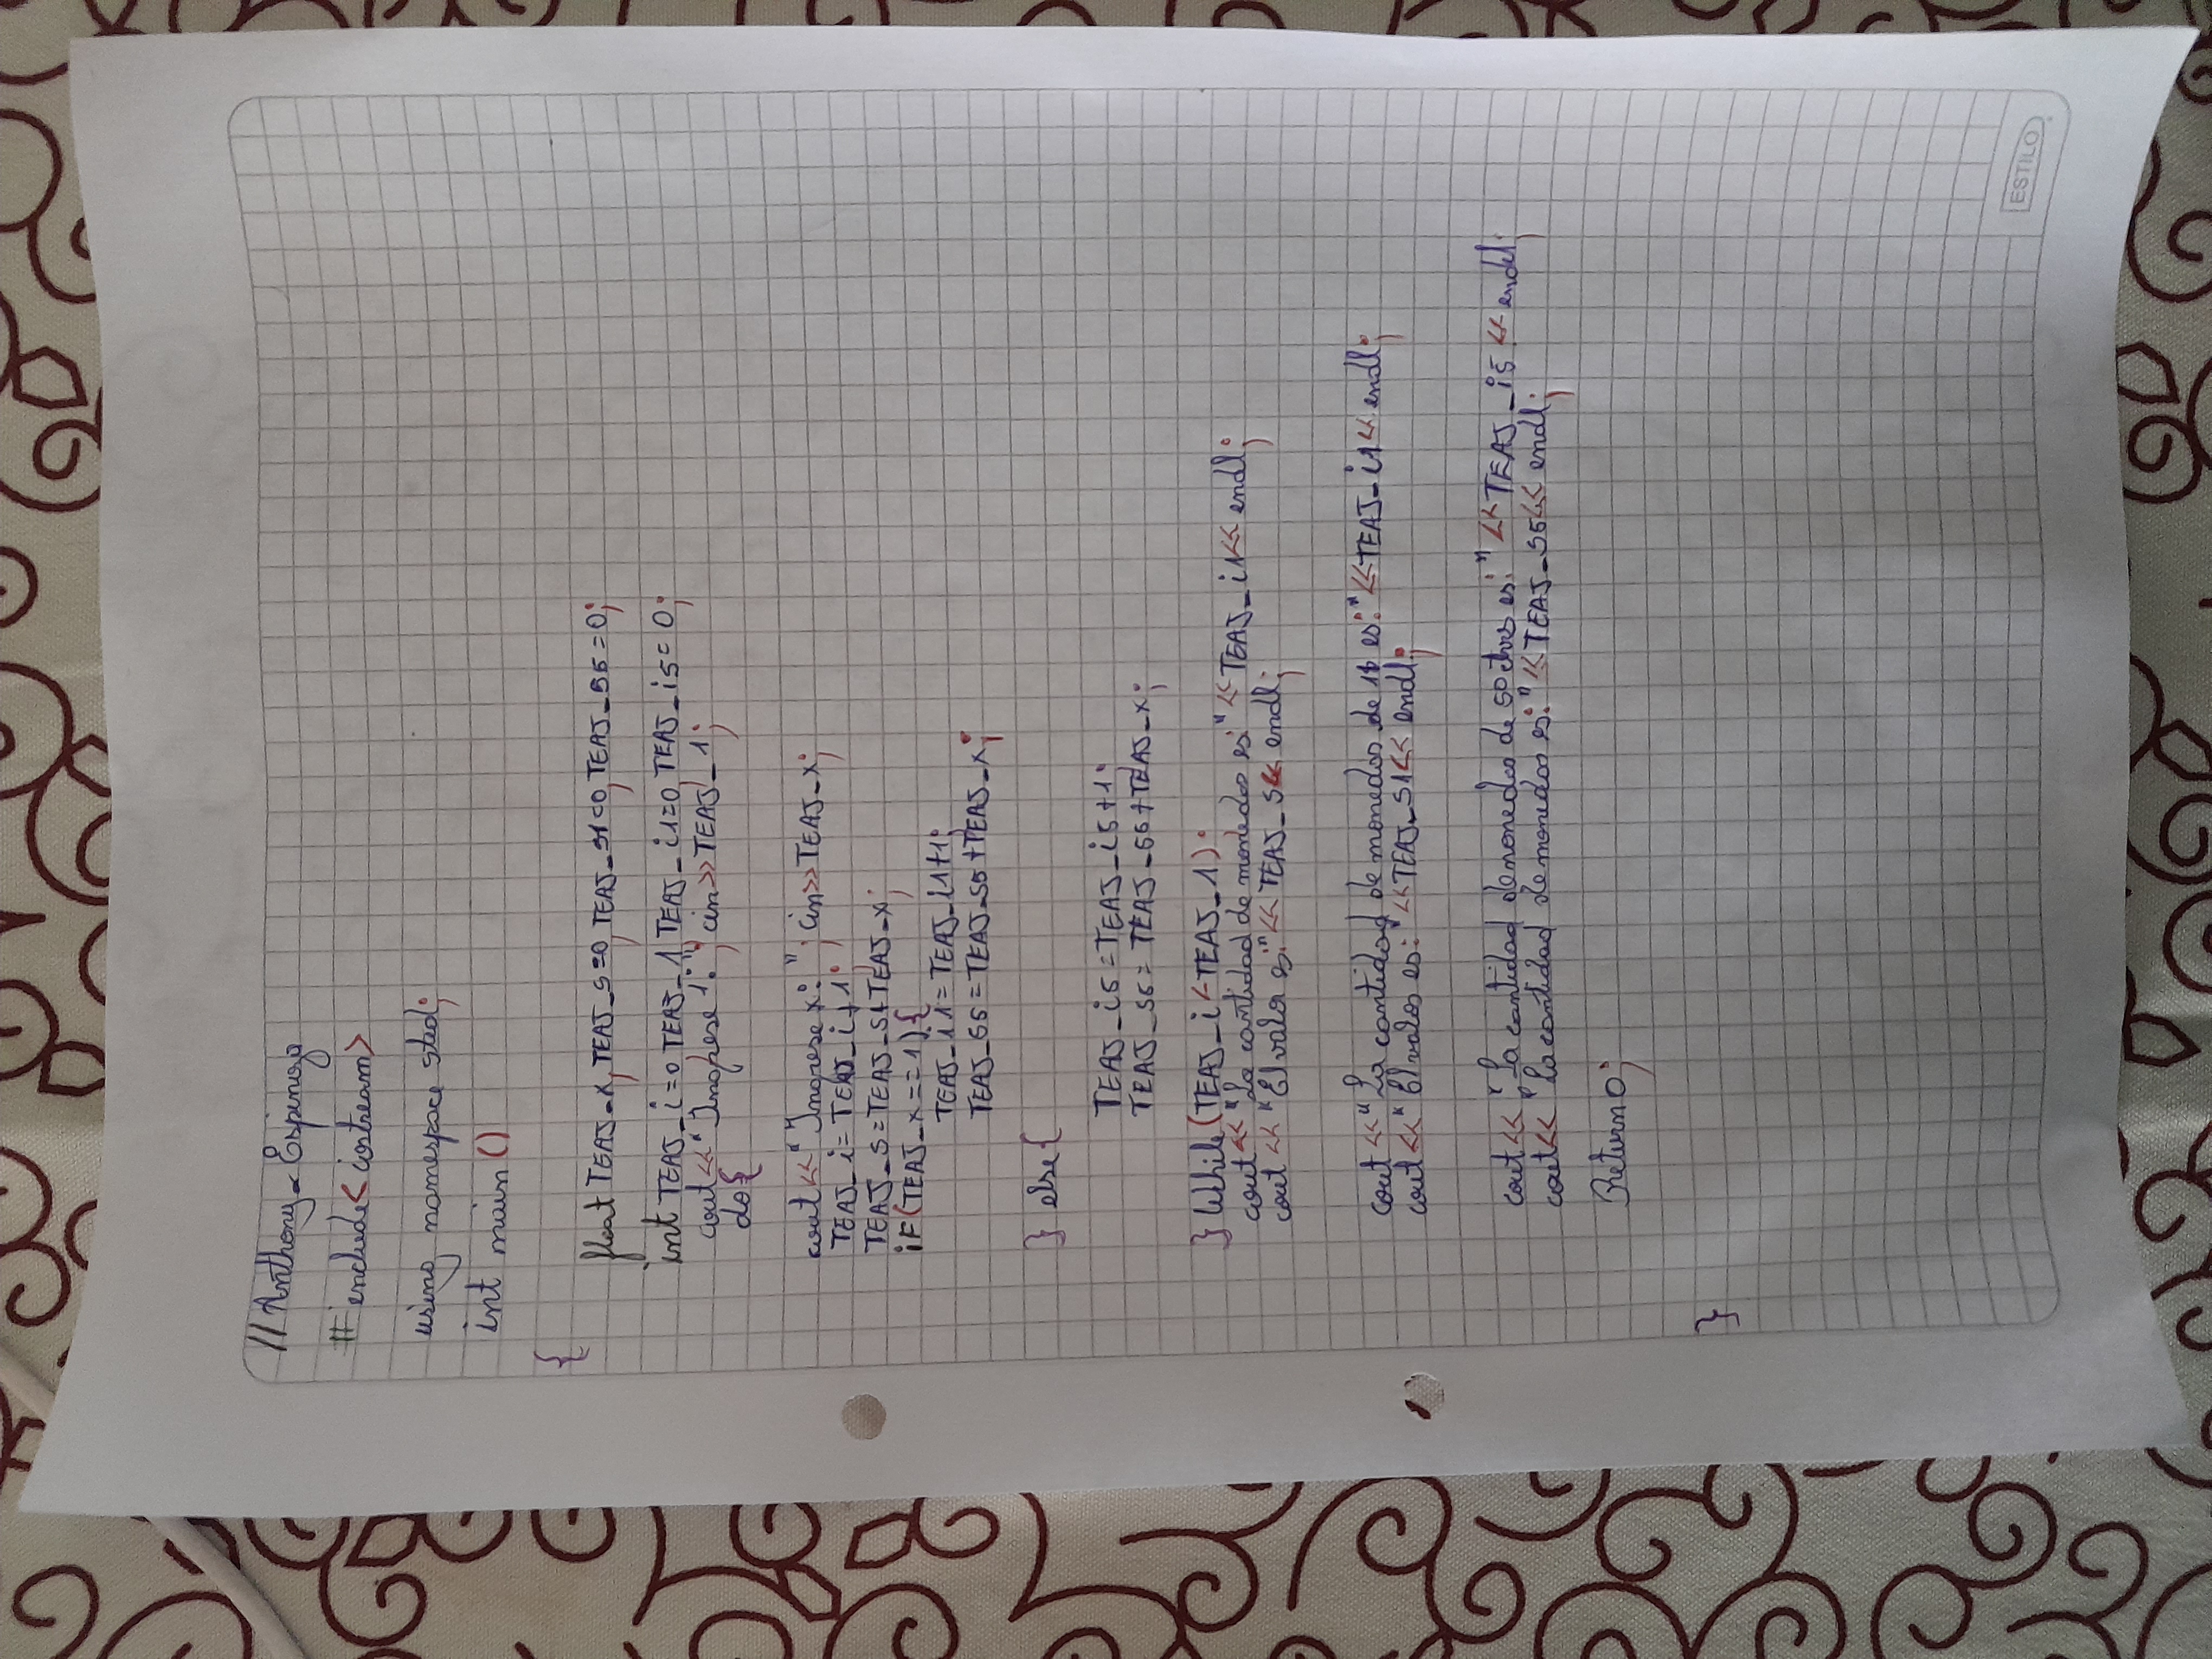 // Anthony_Espinoza
# include< iostream>
using namespace std;
int main ()
{
float TEAJ_x, TEAJ_s=0, TEAJ_s1=0, TEAJ_s5=0;
int TEAJ_i=0, TEAJ_1, TEAJ_i1=0, TEAJ_i5=0;
cout<<"Ingrese 1:"; cin>>TEAJ_1;
do{
cout<<"Ingrese x: "; cin>>TEAJ_x;
TEAJ_i=TEAJ_i+1;
TEAJ_s=TEAJ_s+TEAJ_x;
if(TEAJ_x==1){
TEAJ_i1=TEAJ_i1+1;
TEAJ_s5=TEAJ_s5+TEAJ_x;
} else{
TEAJ_i5=TEAJ_i5+1;
TEAJ_s5=TEAJ_s5+TEAJ_x;
} While(TEAJ_i<TEAJ_1):
cout<<"La cantidad de monedas es:"<<TEAJ_i1<< endl;
cout<<"El valor es:"<<TEAJ_s<< endl;
cout<<"La cantidad de monedas de 1$ es:"<<TEAJ_i1<< endl;
cout<<"El valos es:"<<TEAJ_s1<< endl;
cout<<"La cantidad de monedas de 50 ctvs es:"<<TEAJ_i5<< endl;
cout<<"La cantidad de monedas es:"<<TEAJ_s5<< endl;
Return 0;
}
ESTILO